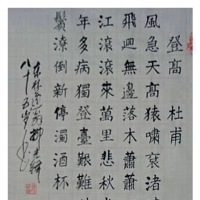 登高 杜甫
風急天高猿嘯哀渚
飛迴無邊落木蕭蕭
來滾滾萬里悲秋常
年多病獨登臺艱難
鬢潦倒新停濁酒杯
八十五岁